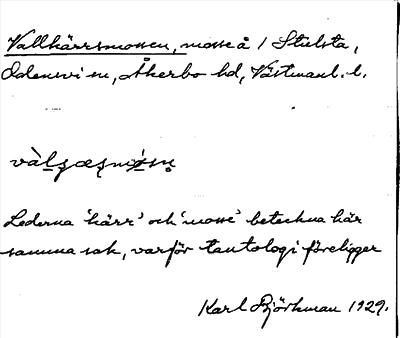 Vallkärrsmossen, mosse å 1 Stulsta,
Odensvi sn, Åkerbo hd, Västmanl. l.
Lederna 'kärr' och 'mosse' beteckna här
samma sak, varför tautologi föreligger
Karl Björkman 1929.